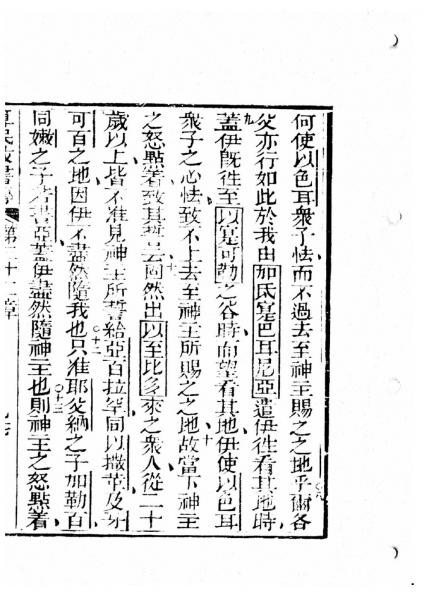 何使以色耳衆子怯而不過去至神主賜之之地乎八爾各
父亦行如此於我由加氐寔巴耳尼亞遣伊徃看其地時
九蓋伊旣徃至以寔可勒之谷時而望看其地伊使以色耳
衆子之心怯致不上去至神主所賜之之地十故當下神主
之怒點着致其誓云十一固然出以至比多來之衆人從二十
歲以上皆不准見神主所誓給亞百拉罕同以撒革及牙
可百之地因伊不盡然隨我也十二只准耶父納之子加勒百
同嫩之子若書亞蓋伊盡然隨神主也十三則神主之怒點着
民數書傳 第三十二章